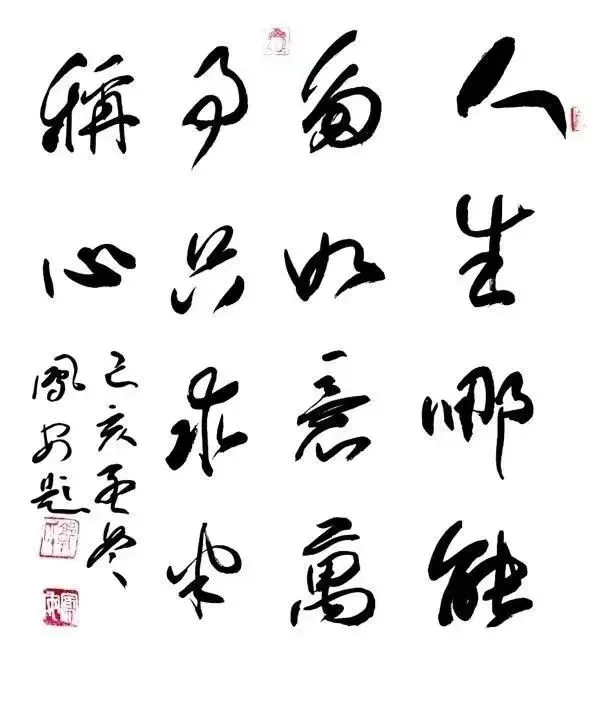 人生哪能
多如意萬
事只求半
稱心
己亥孟冬
鳳安題